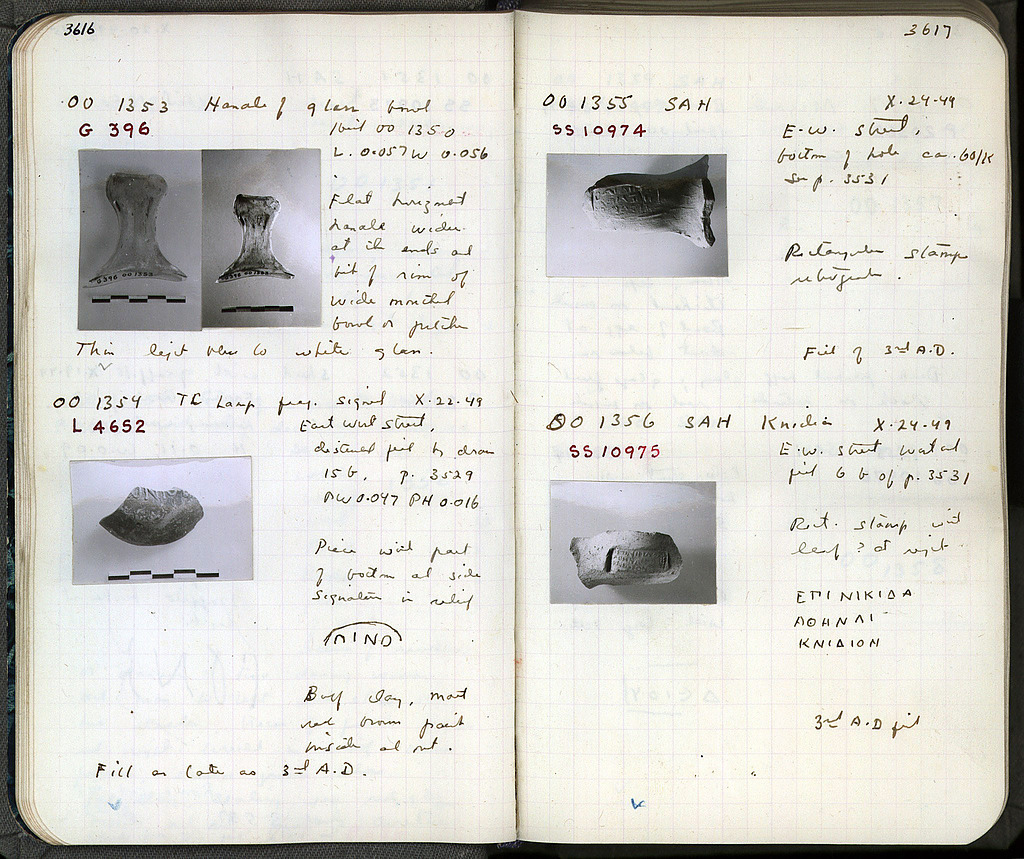 3616
OO 1353 Handle of glass bowl
G 396
OO 1350
L. 0.057 W 0.056
Flat horizont
handle wider
at its ends and
bit of rim of
wide mouthed
bowl or pitcher
G396 OO 1353
Thin light blue to white glass.
OO 1354 TC Lamp frag. signed X-22-49
L 4652
East West Street,
disturbed fill by drain
15 b, p. 3529
PW 0.047 PH 0.016
Piece with part
of bottom and side
Signature in relief
ΠΙΝΟ
Buff clay, mott
red brown paint
inside and out.
Fill as late as 3rd A.D.
3617
OO 1355 SAH X-24-49
SS 10974
E-W. Street,
bottom of hole ca. 60/
See p. 3531
Rectangular stamp
retrograde.
Fill of 3rd A.D.
OO 1356 SAH Knidian X-24-49
SS 10975
E-W. street
fill 6 b of p. 3531
Rect. stamp with
leaf? at right
ΕΠΙΝΙΚΙΔΑ
ΑΘΗΝΑΙ
ΚΝΙΔΙΟΝ
3rd A.D fill